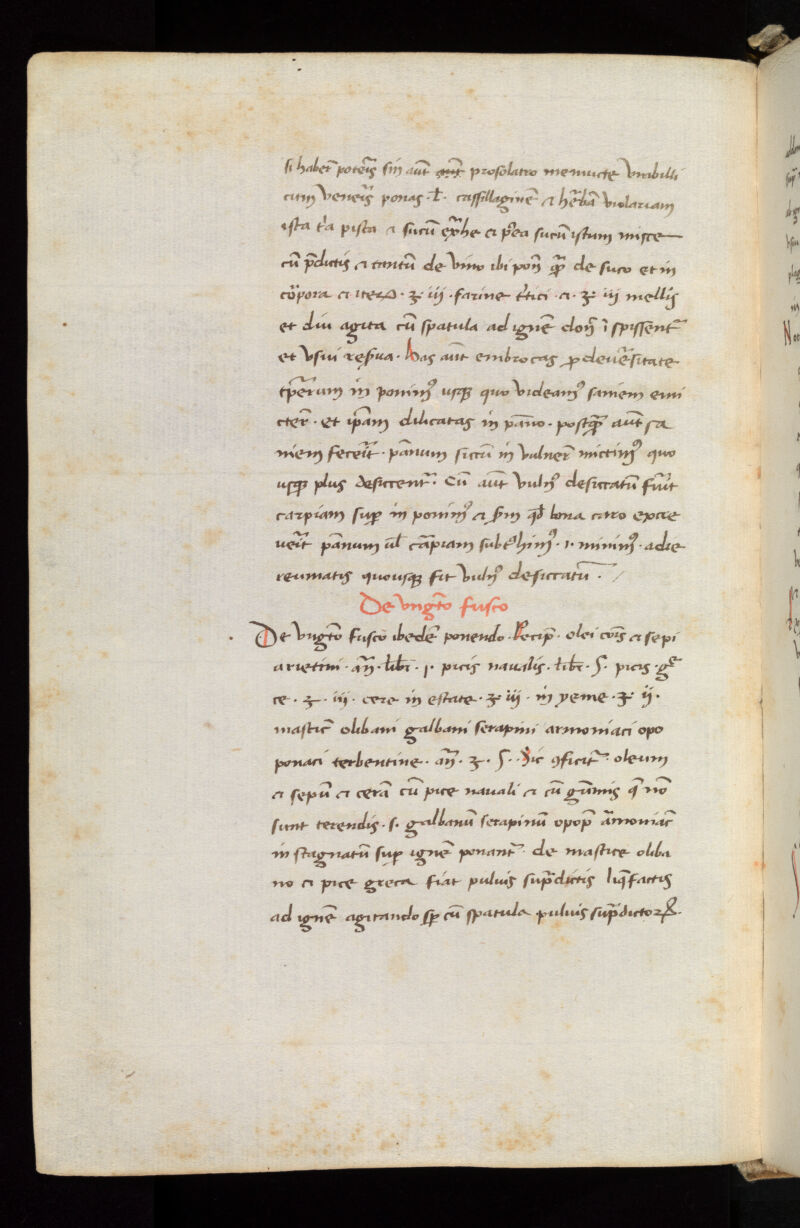 si haber̃ poteris sin aut̃ aut̃ prosolatro memucte Vmbilli
cum Veneris ponas .l. cassillaginẽ ⁊ herbã Violariam
ista t̃a pista ⁊ sucũ ex̃he ⁊ p̃ea sucũ istum misce
cũ p̃dictis ⁊ tantũ de Vino ibi poñ qm̃ de suco et in
corpora ⁊ . ʒ . iii . farine t̃tici . ⁊ . ʒ . iii mellis
et diu agita cũ spatula ad ignẽ donͥ ĩspissent̃
et Vsui rep̃ua . has aut̃ embrocas ꝓ deuersitate
tp̃erum in ponimꝰ usqꝫ quo videamꝰ saniem emi
cter̃ . et ip̃am dilicatas in pãno . postqm̃ aut̃ sa
niem fecer̃it . pãnum siccũ in vulner̃ mictimꝰ quo
usqꝫ plus desiccent̃ . Cũ aut̃ Vulnꝰ desiccatũ fu̾it
carpiam sup̱ in ponimꝰ ⁊ p̃m qd̃ bona caro excre
uer̃it pãnum ul̃ carpiam subt̾himꝰ . i . minimꝰ . adie
reumatis quousqꝫ sit Vulnꝰ desiccatũ .
De vngẽto fusco
De Vngẽto fusco ibedẽ ponendo . Recip̃ . olei cõis ⁊ sepi
arietini . añ . lib̃ . i . picis naualis . lib̃ . S . picis . g̃e
ce . ʒ . iii . cere in estate . ʒ iii . in yeme . ʒ ii .
mastic̃ olibani galbani serapini armoniaci opo
ponaci terbentine . añ . ʒ . S . Sic ꝯficit̃ . oleum
⁊ sepũ ⁊ cerã cũ pice nauali ⁊ cũ gũmis q̃ nõ
sunt terendis . s . galbanũ serapinũ opop̃ ãmoniac̃
in stagnatũ sup̱ ignẽ ponant̃ . de mastice oliba
no ⁊ pice greca fiat puluis sup̃dictis liq̃factis
ad ignẽ agitando sp̱ cũ spatula puluis sup̃dictoꝝ .